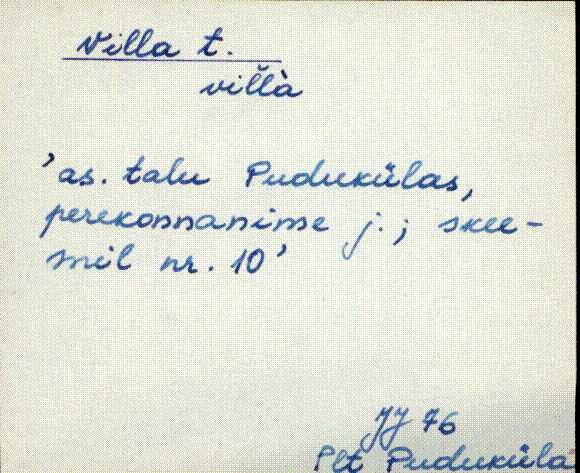 Villa t.
vil̆l̆à
'as. talu Pudukülas,
perekonnanime j.; skee-
mil nr. 10'
JJ 76
Plt Puduküla